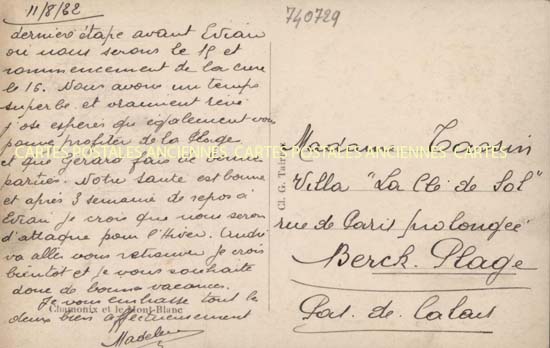 11/8/32
740729
dernière étape avant Evian
où nous serons le 15 et
commencement de la cure
le 16. Nous avons un temps
superbe et vraiment rêvé
j'ose espérer qu'également vous
pouvez profiter de la plage
et que Gérard fait de bonnes
parties. Notre santé est bonne
et après 3 semaines de repos à
Evian je crois que nous serons
d'attaque pour l'hiver. André
va aller vous retrouver je crois
bientôt et je vous souhaite
donc de bonnes vacances.
Je vous embrasse tout le
deux bien affectueusement
Madeleine
Chamonix et le Mont-Blanc
Cl. G.
Madame
Villa "La Clé de Sol"
rue de Paris prolongée
Berck. Plage
Pas. de. Calais
CARTES POSTALES ANCIENNES CARTES POSTALES ANCIENNES CARTES